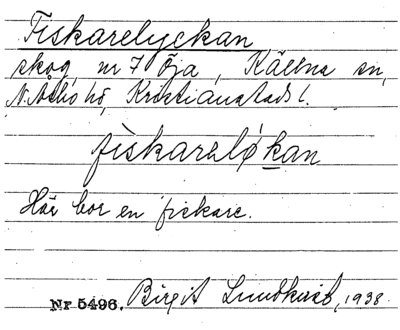 Fiskarelyckan
skog, nr 7 Öja, Källna sn,
N. Åsbo hd, Kristianstads l.
fìskareløkan
Här bor en fiskare.
Nr 5496. Birgit Lundkvist, 1938